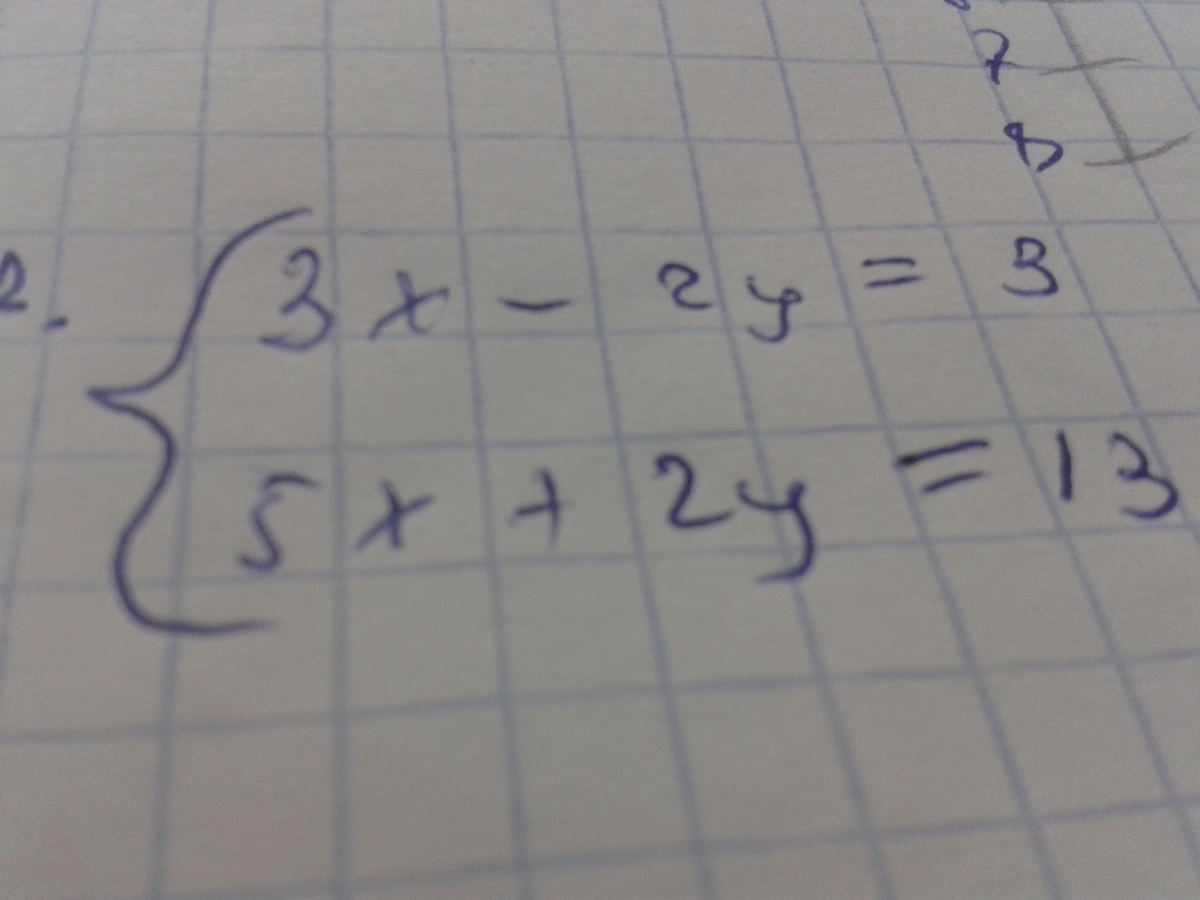 7
8
2.
3x - 2y = 3
5x + 2y = 13